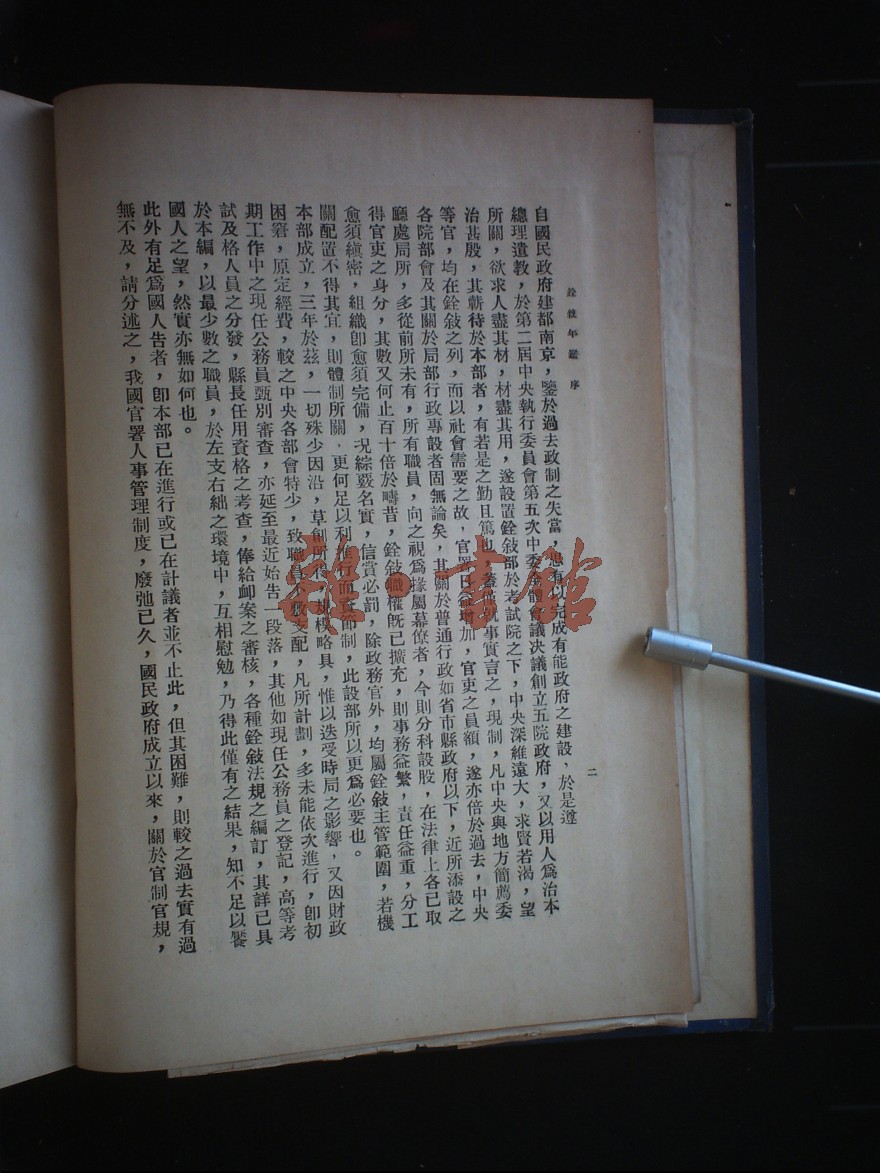 銓敘年鑑 序
二
自國民政府建都南京，鑒於過去政制之失當，思有以完成有能政府之建設，於是遵
總理遺教，於第二屆中央執行委員會第五次中委全體會議決議創立五院政府，又以用人爲治本
所關，欲求人盡其材，材盡其用，遂設置銓敍部於考試院之下，中央深維遠大，求賢若渴，望
治甚殷，其蘄待於本部者，有若是之勤且篤也，蓋就事實言之，現制，凡中央與地方簡薦委
等官，均在銓敍之列，而以社會需要之故，官署日益增加，官吏之員額，遂亦倍於過去，中央
各院部會及其關於局部行政專設者固無論矣，其關於普通行政如省市縣政府以下，近所添設之
廳處局所，多從前所未有，所有職員，向之視爲掾屬幕僚者，今則分科設股，在法律上各已取
得官吏之身分，其數又何止百十倍於疇昔，銓敍職權旣已擴充，則事務益繁，責任益重，分工
愈須縝密，組織卽愈須完備，况綜覈名實，信賞必罰，除政務官外，均屬銓敍主管範圍，若機
關配置不得其宜，則體制所關，更何足以利進行而節制，此設部所以更爲必要也。
本部成立，三年於茲，一切殊少因沿，草創所得，規模略具，惟以迭受時局之影響，又因財政
困窘，原定經費，較之中央各部會特少，致職員不敷支配，凡所計劃，多未能依次進行，卽初
期工作中之現任公務員甄別審查，亦延至最近始告一段落，其他如現任公務員之登記，高等考
試及格人員之分發，縣長任用資格之考查，俸給卹案之審核，各種銓敍法規之編訂，其詳已具
於本編，以最少數之職員，於左支右絀之環境中，互相慰勉，乃得此僅有之結果，知不足以饜
國人之望，然實亦無如何也。
此外有足爲國人告者，卽本部已在進行或已在計議者並不止此，但其困難，則較之過去實有過
無不及，請分述之，我國官署人事管理制度，廢弛已久，國民政府成立以來，關於官制官規，
雅·書館